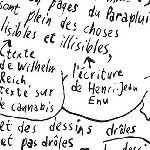 pages du Parapluie
sont plein des choses
lisibles et illisibles,
texte
de Wilhelm
Reich
texte sur
le cannabis
l'écriture
de Henri-Jean
Enu
et des dessins drôles
et pas drôles —